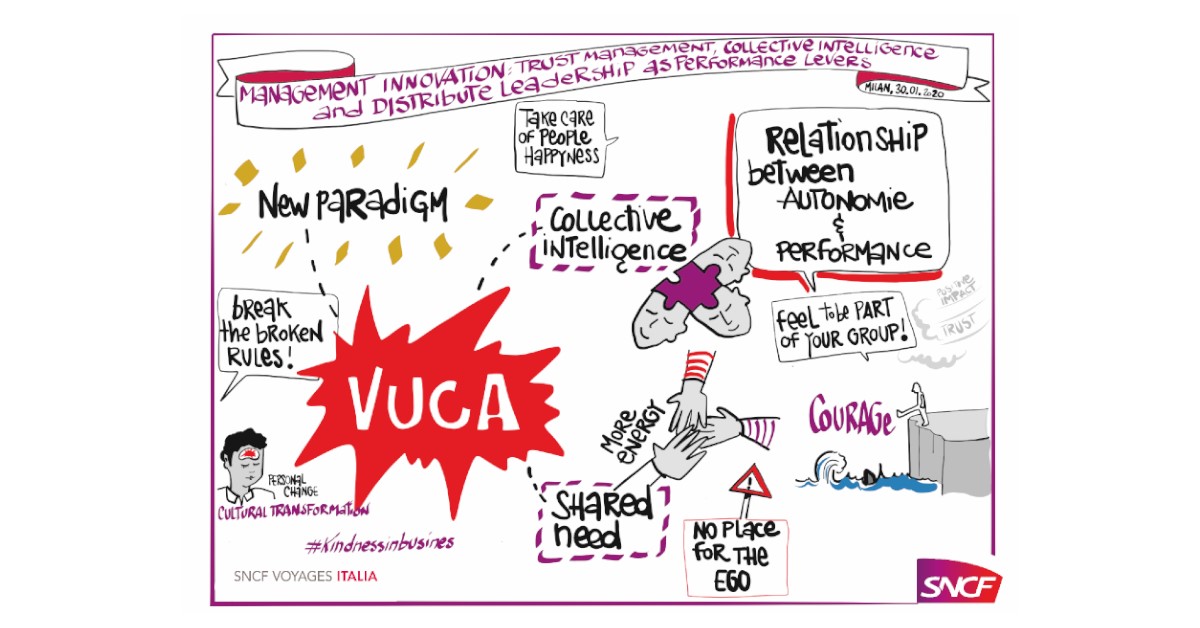 MANAGEMENT INNOVATION: TRUST MANAGEMENT, COLLECTIVE INTELLIGENCE
and DISTRIBUTE LEADERSHIP AS PERFORMANCE LEVERS
MILAN, 30.01.2020
TAKE CARE
OF PEOPLE
HAPPYNESS
RELATIONSHIP
between
AUTONOMIE
&
PERFORMANCE
New PARADIGM
COLLECTIVE
INTELLIGENCE
break
the broken
RULES!
feel to be PART
OF YOUR GROUP!
POSITIVE
IMPACT
TRUST
VUCA
COURAGE
MORE
ENERGY
PERSONAL
CHANGE
CULTURAL TRANSFORMATION
SHARED
need
NO PLACE
FOR THE
EGO
#Kindnessinbusines
SNCF VOYAGES ITALIA
SNCF